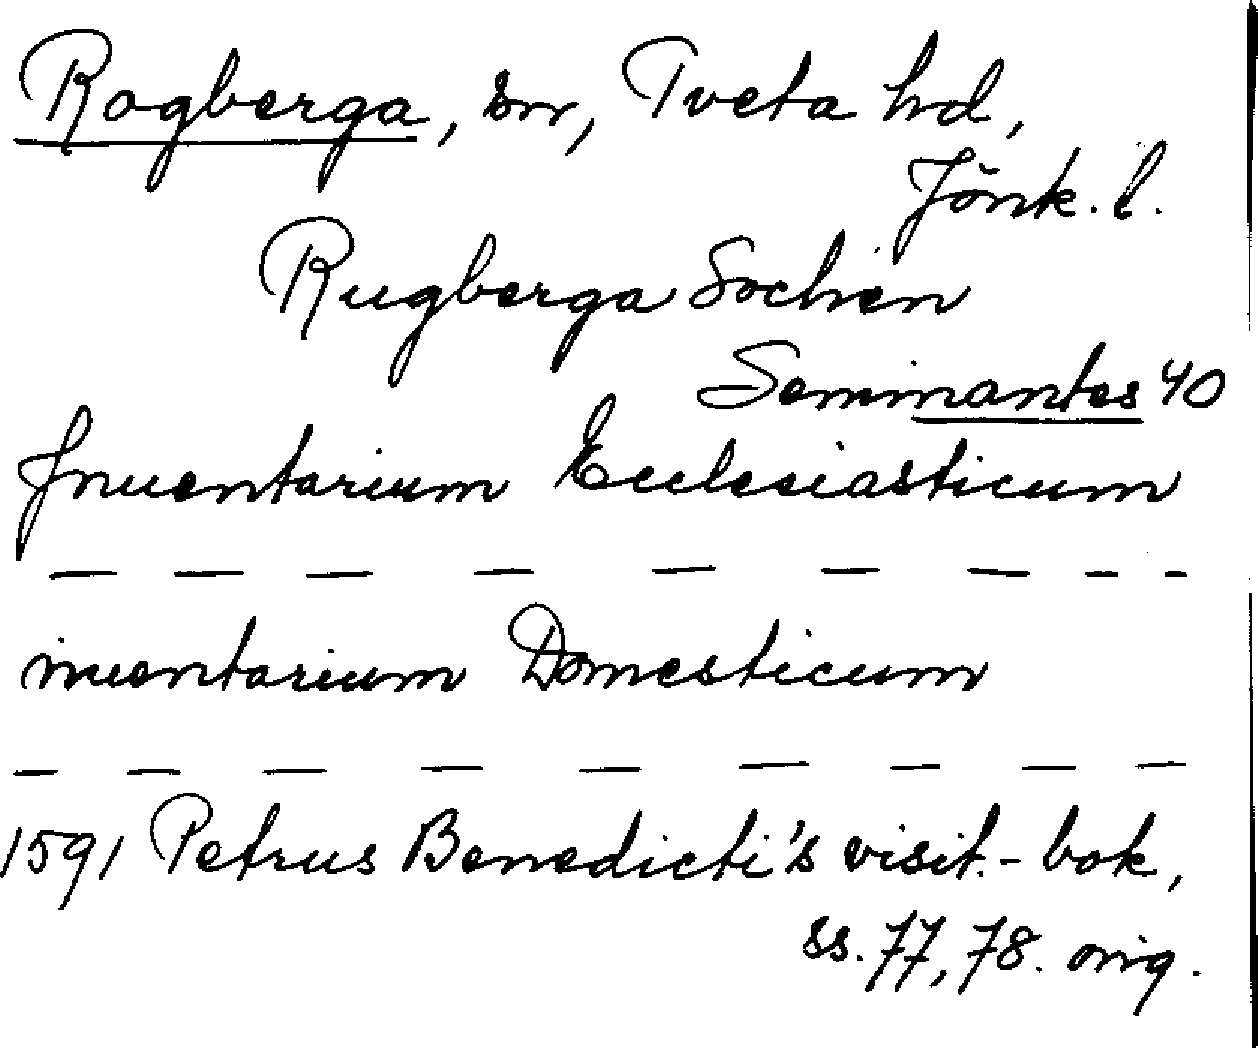 Rogberga, sn, Tveta hd,
Jönk. l.
Rugberga Sochen
Seminantes 40
Inuentarium Ecclesiasticum
— — — — — — — - -
inuentarium Domesticum
— — — — — — — — —
1591 Petrus Benedicti's visit.-bok,
ss. 77, 78. orig.